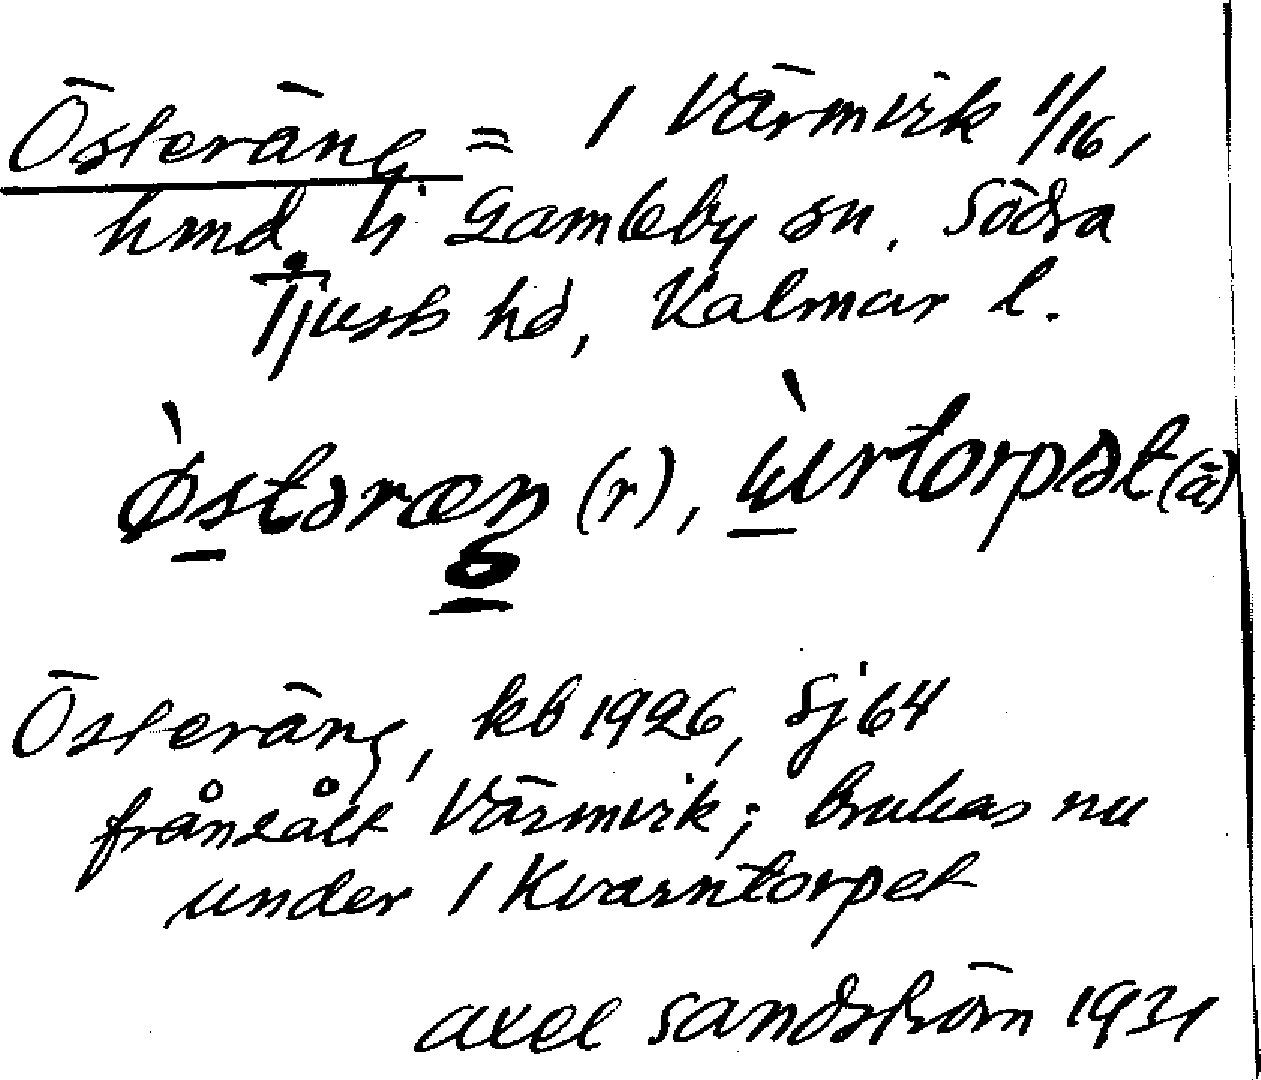 Österäng = 1 Värmvik 1/16,
hmd. i Gamleby sn. Södra
Tjusts hd, Kalmar l.
(r), (ä)
Österäng, kb 1926, Sj 64
frånsålt Värmvik; brukas nu
under 1 Kvarntorpet
Axel Sandström 1931